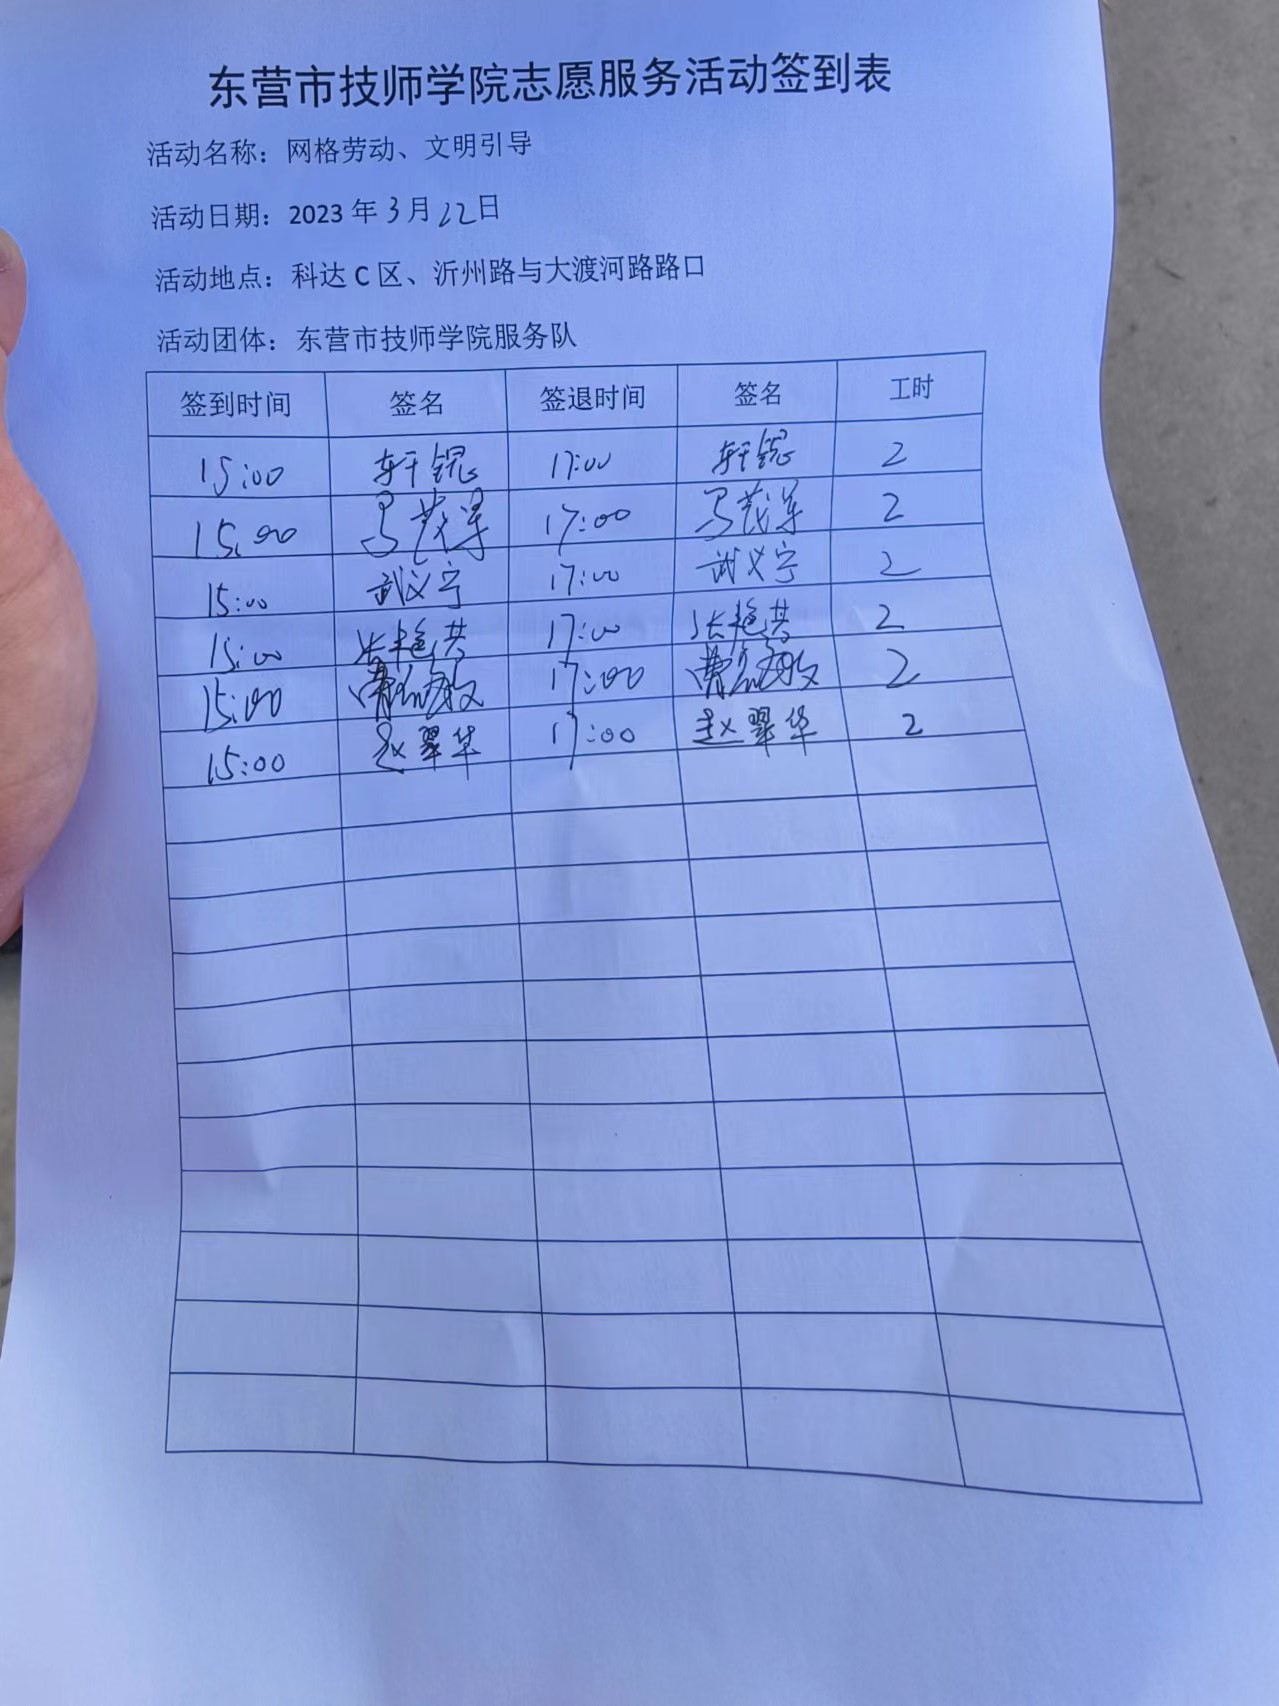 东营市技师学院志愿服务活动签到表
活动名称：网格劳动、文明引导
活动日期：2023 年 3 月 12 日
活动地点：科达 C 区、沂州路与大渡河路路口
活动团体：东营市技师学院服务队
签到时间 签名 签退时间 签名 工时
15:00 17:00 2
15:00 马茂军 17:00 马茂军 2
15:00 武义宁 17:00 武义宁 2
15:00 张艳芸 17:00 张艳芸 2
15:00 17:00 2
15:00 赵翠华 17:00 赵翠华 2